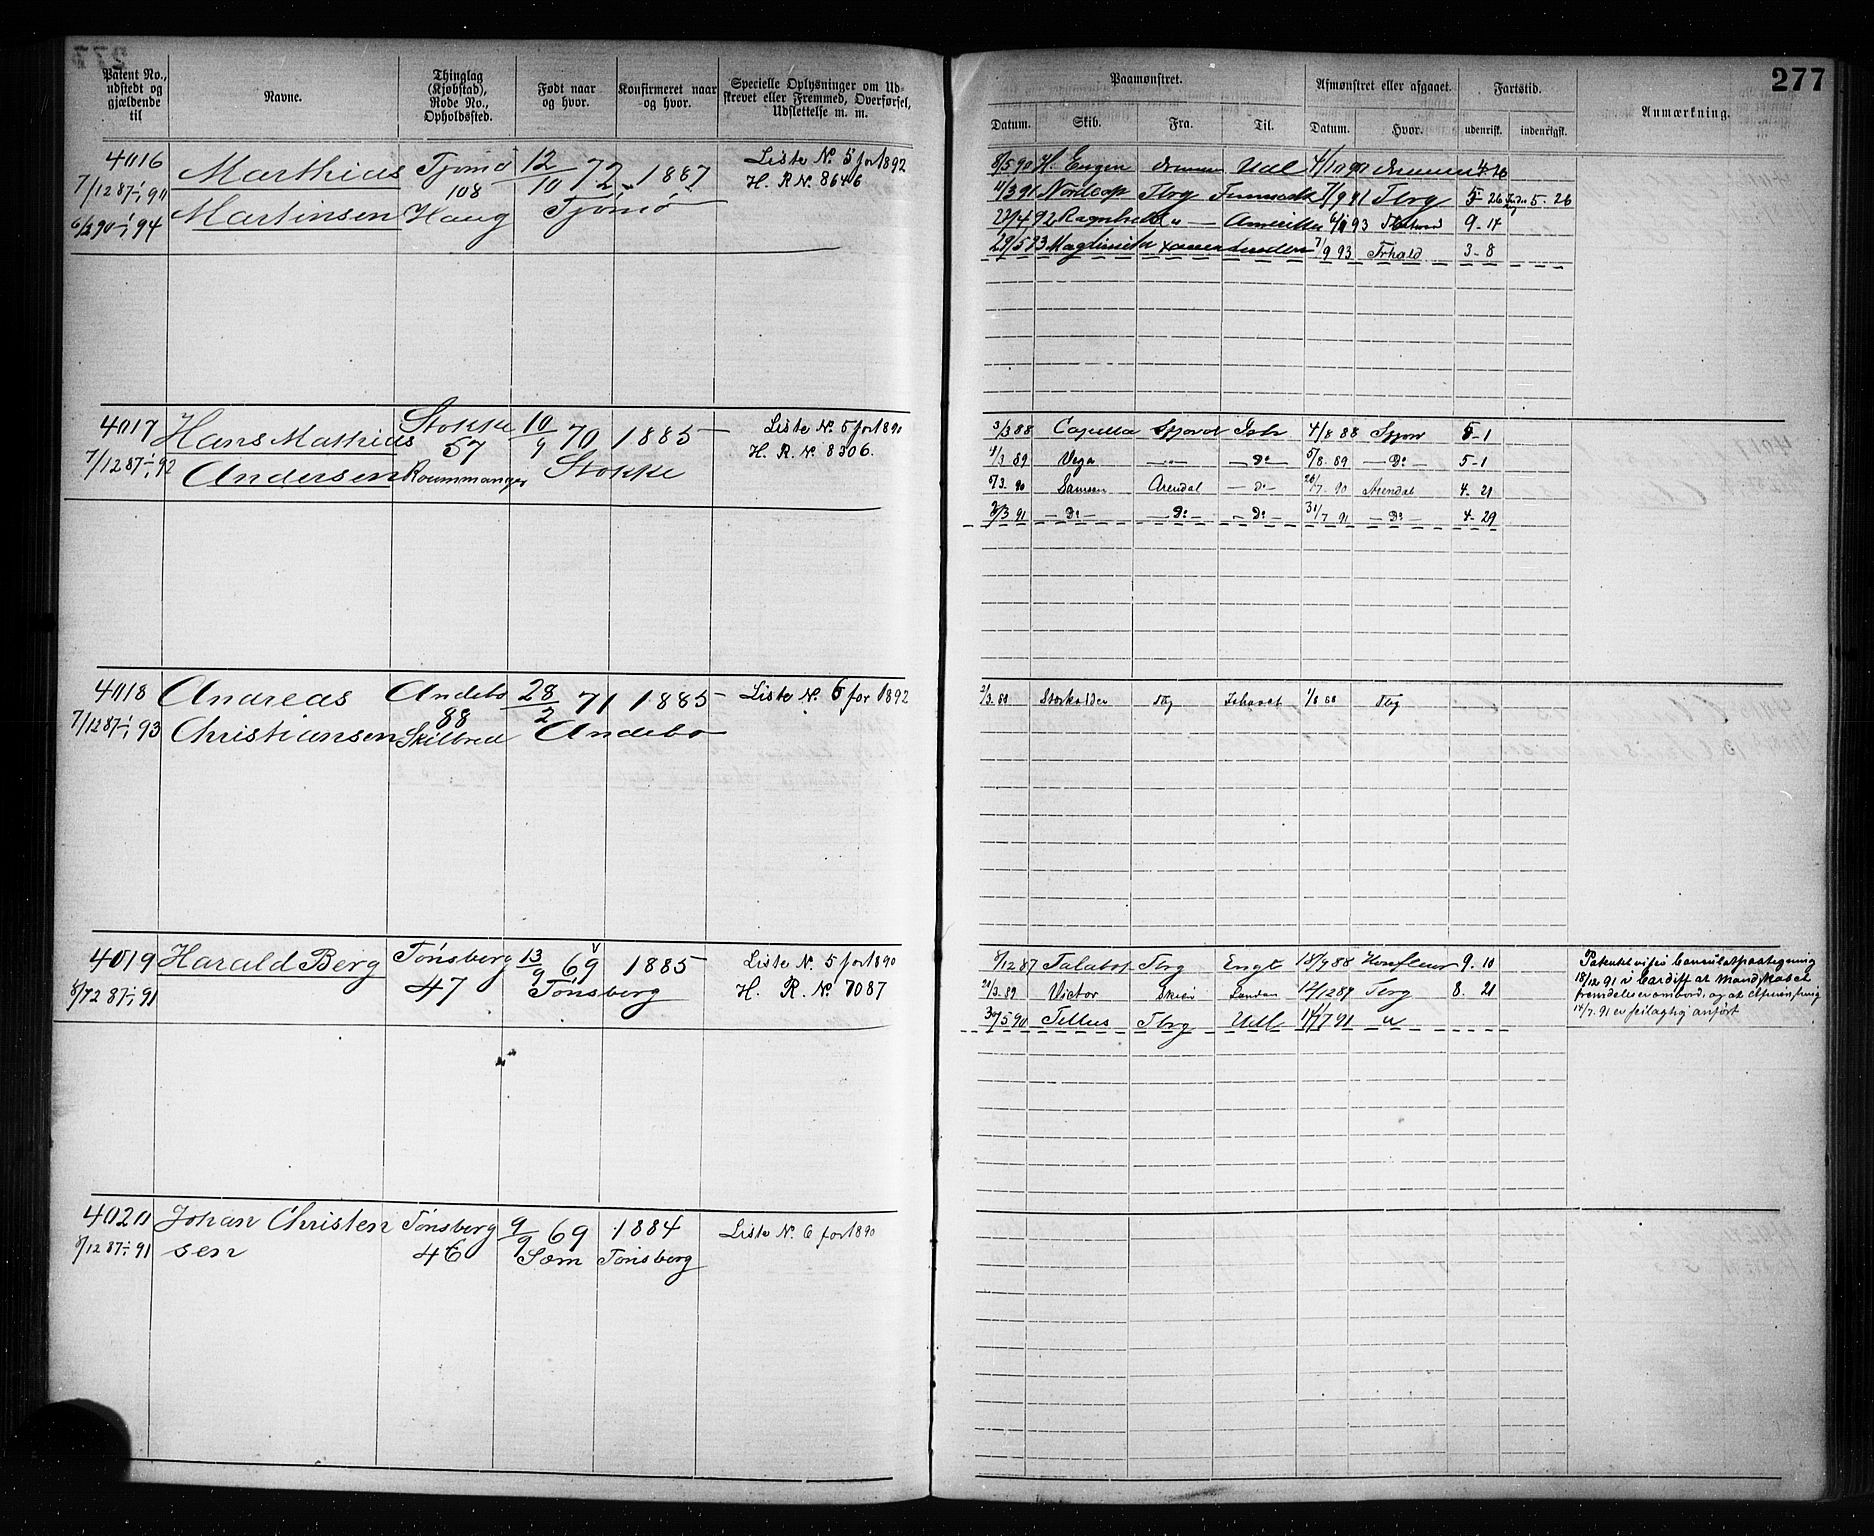 277
Patent No., udstedt og gjældende til
Navne.
Thinglag (Kjøbstad), Rode No., Opholdssted.
Født naar og hvor.
Konfirmeret naar og hvor.
Specielle Oplysninger om Udskrevet eller Fremmed, Overførsel, Udslettelse m. m.
Paamønstret.
Afmønstret eller afgaaet.
Fartstid.
Anmærkning.
Datum. Skib. Fra. Til. Datum. Hvor. udenrisk. indenrigsk.
4016 Marthias Tjømø 12/10 72 1887 Liste No. 5 for 1892
7/12 87-1/1 90 108 H. R. No. 8646
6/2 90-1/1 94 Martinsen Haug Tjømø
8/5 90 H. Engen Udl 4/10 91 4-26
11/3 91 Nordcap Tbrg 7/9 91 Tbrg 5-26 5-26
23/4 92 Ragnhild " Amerika 93 9-17
29/5 93 London 7/9 93 Frhald 3-8
4017 Hans Mathias Stokke 10/9 70 1885 Liste No. 5 for 1890
7/12 87-1/1 92 57 H. R. No. 8306.
Andersen Stokke
3/3 88 Capella Ish 4/8 88 5-1
1/3 89 Vega -"- -Do- 5/8 89 -Do- 5-1
3 90 Samsen Arendal -Do- 26/7 90 Arendal 4-21
2/3 91 -Do- -Do- -Do- 31/7 91 -Do- 4-29
4018 Andreas Andebo 28/2 71 1885 Liste No. 6 for 1892
7/12 87-1/1 93 88
Christiansen Skilbred Andebo
2/3 88 Tbg Ishavet 1/8 88 Tbg
4019 Harald Berg Tønsberg 13/9 69 1885 Liste No. 5 for 1890
8/12 87-1/1 91 47 Tønsberg H. R. No. 7087
8/12 87 Tbrg Engl 18/9 88 Honfleur 9.10
21/3 89 Victor London 12/12 89 Tbrg 8.21
30/5 90 Tellus Tbrg Udl 14/7 91 "
Patentet vises Consulatpaategning
18/12 91 i Cardiff at Mandskabet
fremdeles er ombord, og at afmønstring
14/7. 91 er feilagtig anført
4020 Johan Christen Tønsberg 9/9 69 1884 Liste No. 6 for 1890
8/12 87-1/1 91 sen 46 Sem Tønsberg